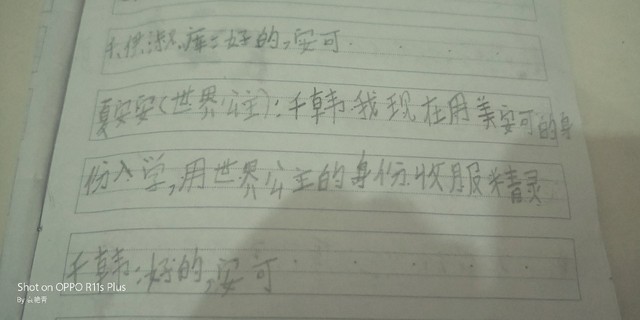 好的,安可.......
夏安安(世界公主):千韩我现在用美安可的身
份入学,用世界公主的身份收服精灵
千韩:好的,安可.......
Shot on OPPO R11s Plus
By